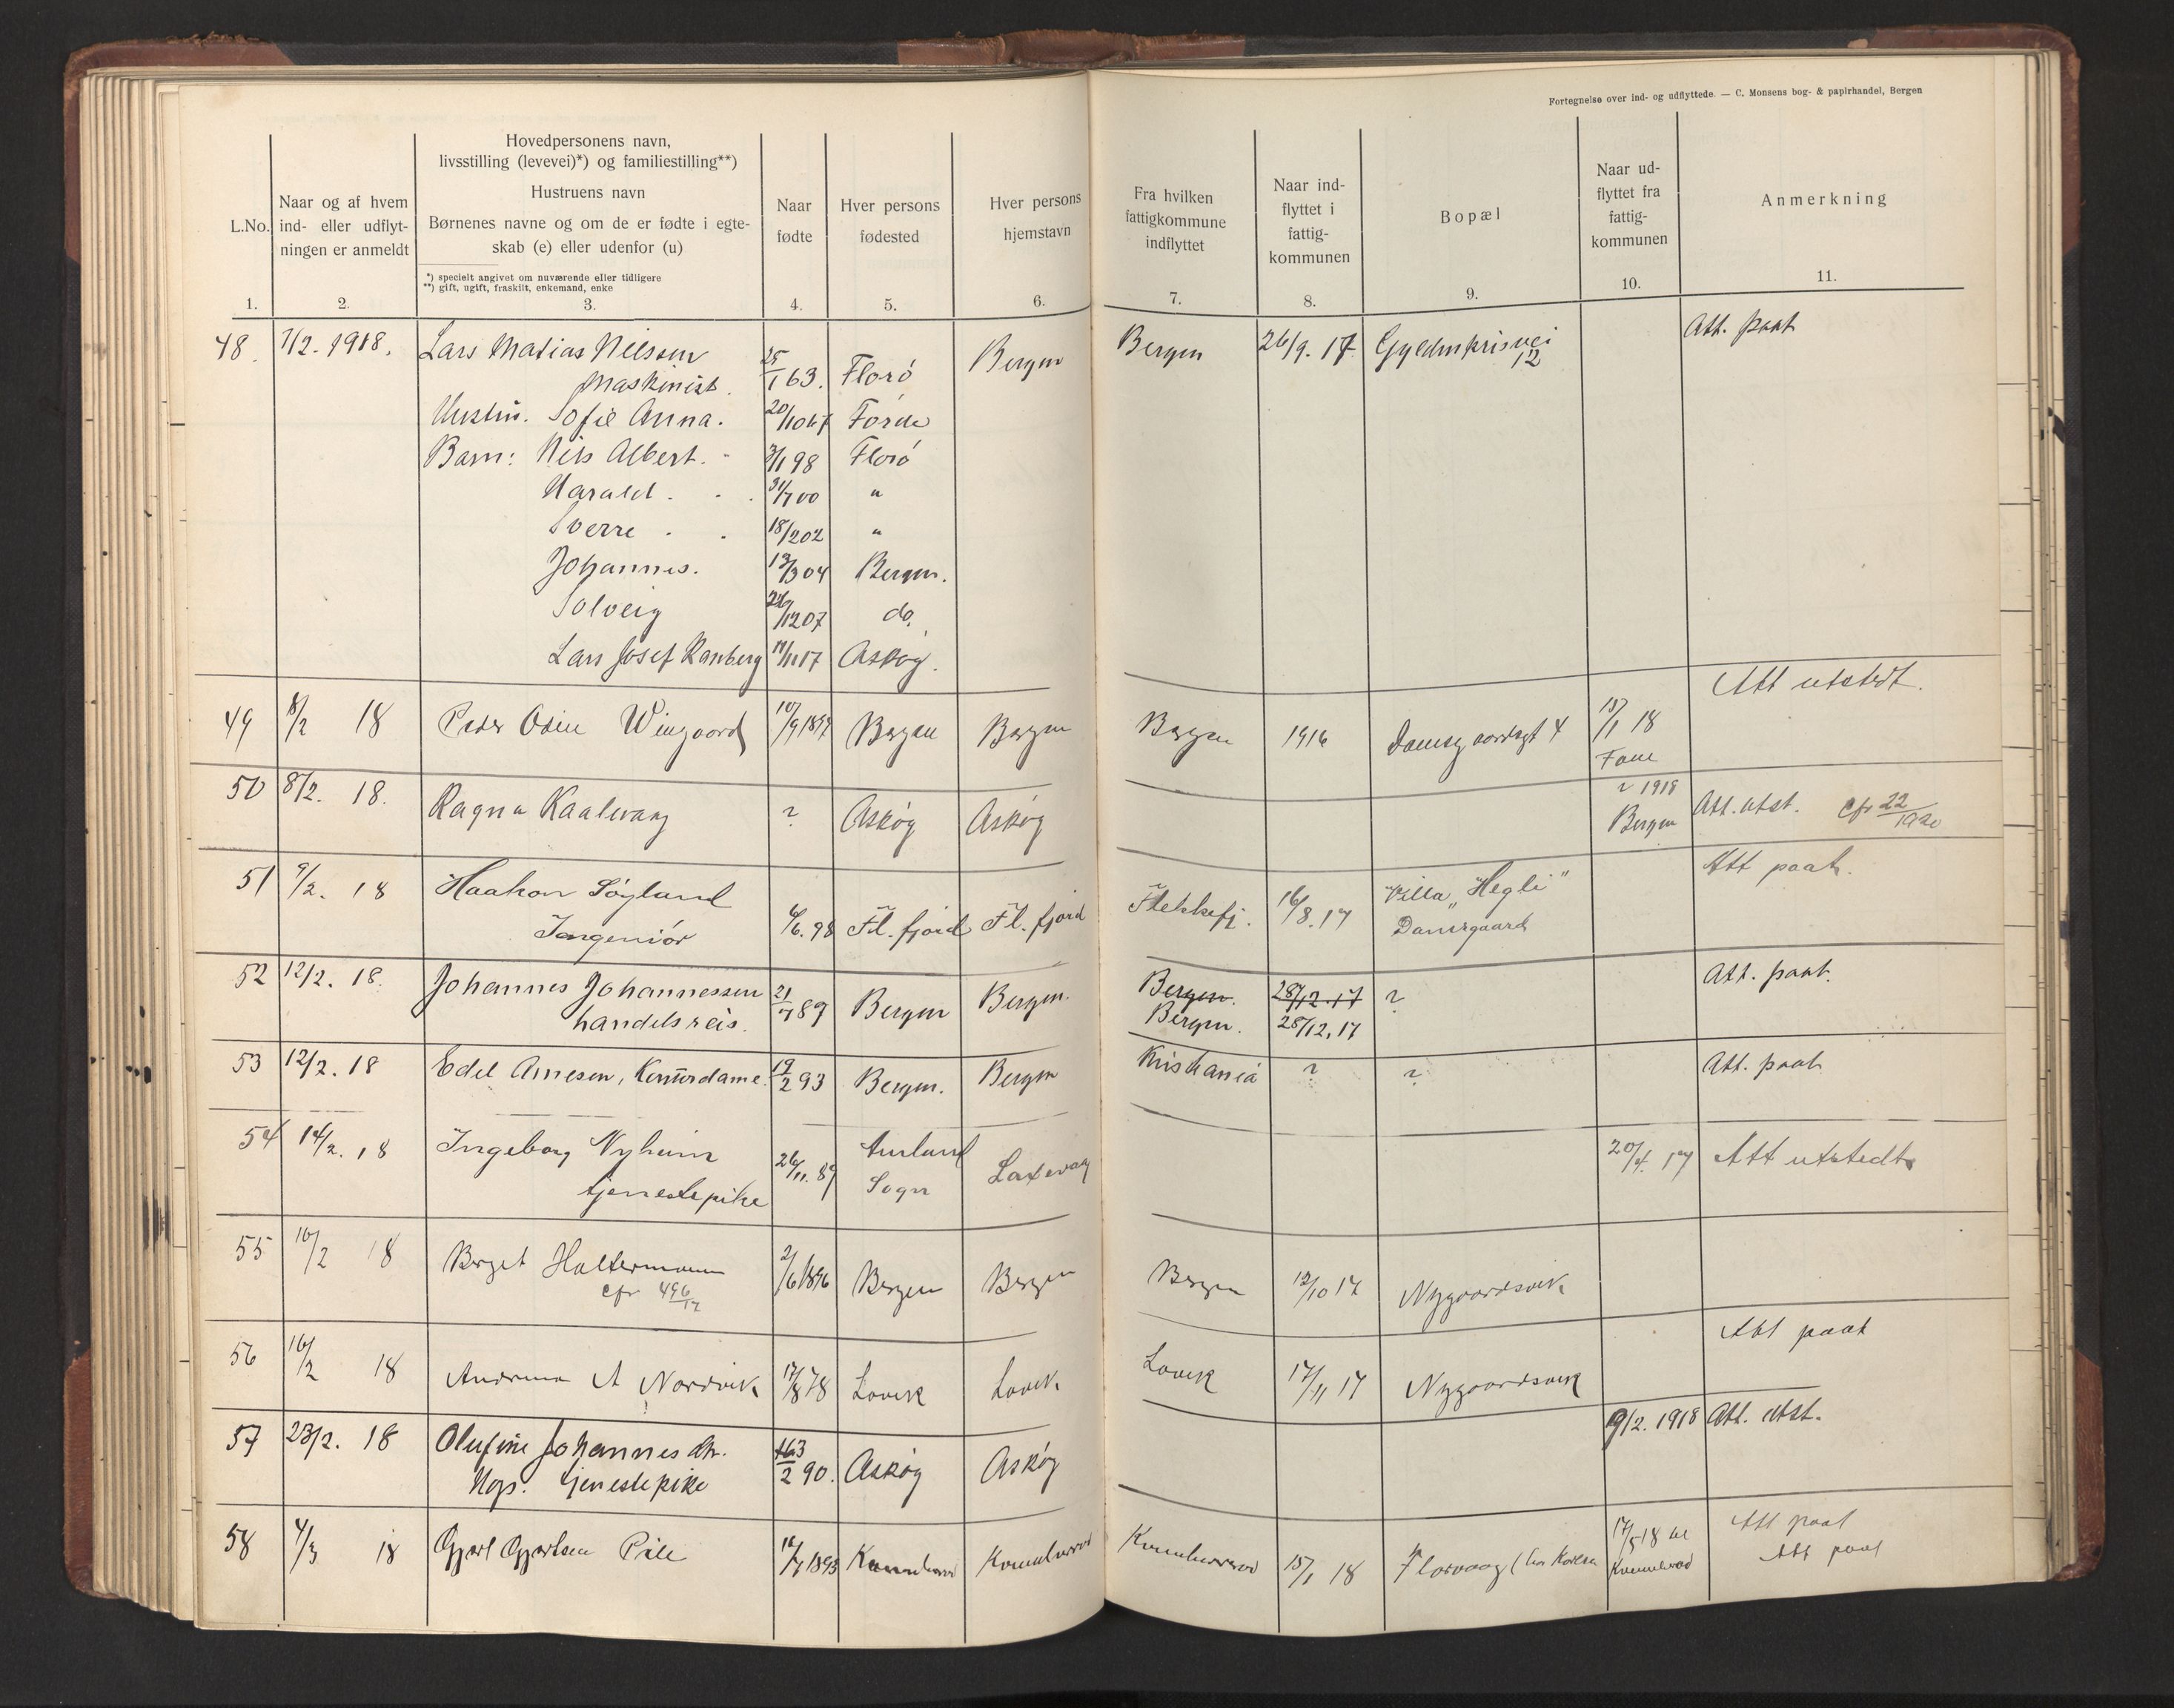 Fortegnelse over ind- og udflyttede. — C. Monsens bog- & papirhandel, Bergen
L.No.
1.
Naar og af hvem
ind- eller udflyt-
ningen er anmeldt
2.
Hovedpersonens navn,
livsstilling (levevei)*) og familiestilling**)
Hustruens navn
Børnenes navne og om de er fødte i egte-
skab (e) eller udenfor (u)
*) specielt angivet om nuværende eller tidligere
**) gift, ugift, fraskilt, enkemand, enke
3.
Naar
fødte
4.
Hver persons
fødested
5.
Hver persons
hjemstavn
6.
Fra hvilken
fattigkommune
indflyttet
7.
Naar ind-
flyttet i
fattig-
kommunen
8.
Bopæl
9.
Naar ud-
flyttet fra
fattig-
kommunen
10.
Anmerkning
11.
48. 7/2. 1918. Lars Matias Nilssen Bergen Bergen 26/9. 17 Gyldenprisvei 12 Att. paat
Maskinist. 25/1 63. Florø
Hustru. Sofie Anna. 20/10 67 Førde
Barn: Nils Albert. 3/1 98 Florø
Harald 31/7 00 "
Sverre 18/2 02 "
Johannes. 13/3 04 Bergen.
Solveig 24/12 07 do.
Lars Josef Ranberg 11/11 17 Askøy.
49 8/2 18 Peder Odin Wingaard 10/9 1897 Bergen Bergen Bergen 1916 Damsgaardsgt 4 15/1 18 Fane Att utstedt.
50 8/2. 18. Ragna Kaalvaag ? Askøy Askøy ? 1918 Bergen Att. utst. cfr 22/1920
51 9/2. 18 Haakon Søyland
Ingeniør 4/6. 98 Fl. fjord Fl. fjord Flekkefj. 16/8. 17 Villa "Hegli" Damsgaard Att paat.
52 12/2. 18. Johannes Johannessen
handelsreis. 21/7 89 Bergen Bergen. Bergen. 28/12 17 ? Att. paat.
Bergen. 28/12. 17
53 12/2. 18 Edel Arnesen, Kontordame. 19/2 93 Bergen. Bergen Kristiania ? ? Att. paat
54 14/2. 18 Ingeborg Nyheim
tjenestepike 26/11. 89 Aurland Sogn Laxevaag 20/4. 17 Att utstedt
55 16/2 18 Berget Haltermann 2/6 1896 Bergen Bergen Bergen 12/10 17 Nygaardsvik
cfr 496/17
56 16/2 18 A Nordvik 17/8 78 Lavik Lavik Lavik 17/11 17 Nygaardsvik Att paat
57 23/2. 18 Olufine Johannes dtr.
Hop. tjenestepike 2 90. Askøy Askøy 9/2. 1918 Att. utst.
58 4/3 18 Gjert Gjertsen Pile 1893 Kvindherred Kvindherred Kvindherred 15/1 18 Florvaag 17/5 18 til Kvindherred Att paat
Att paat